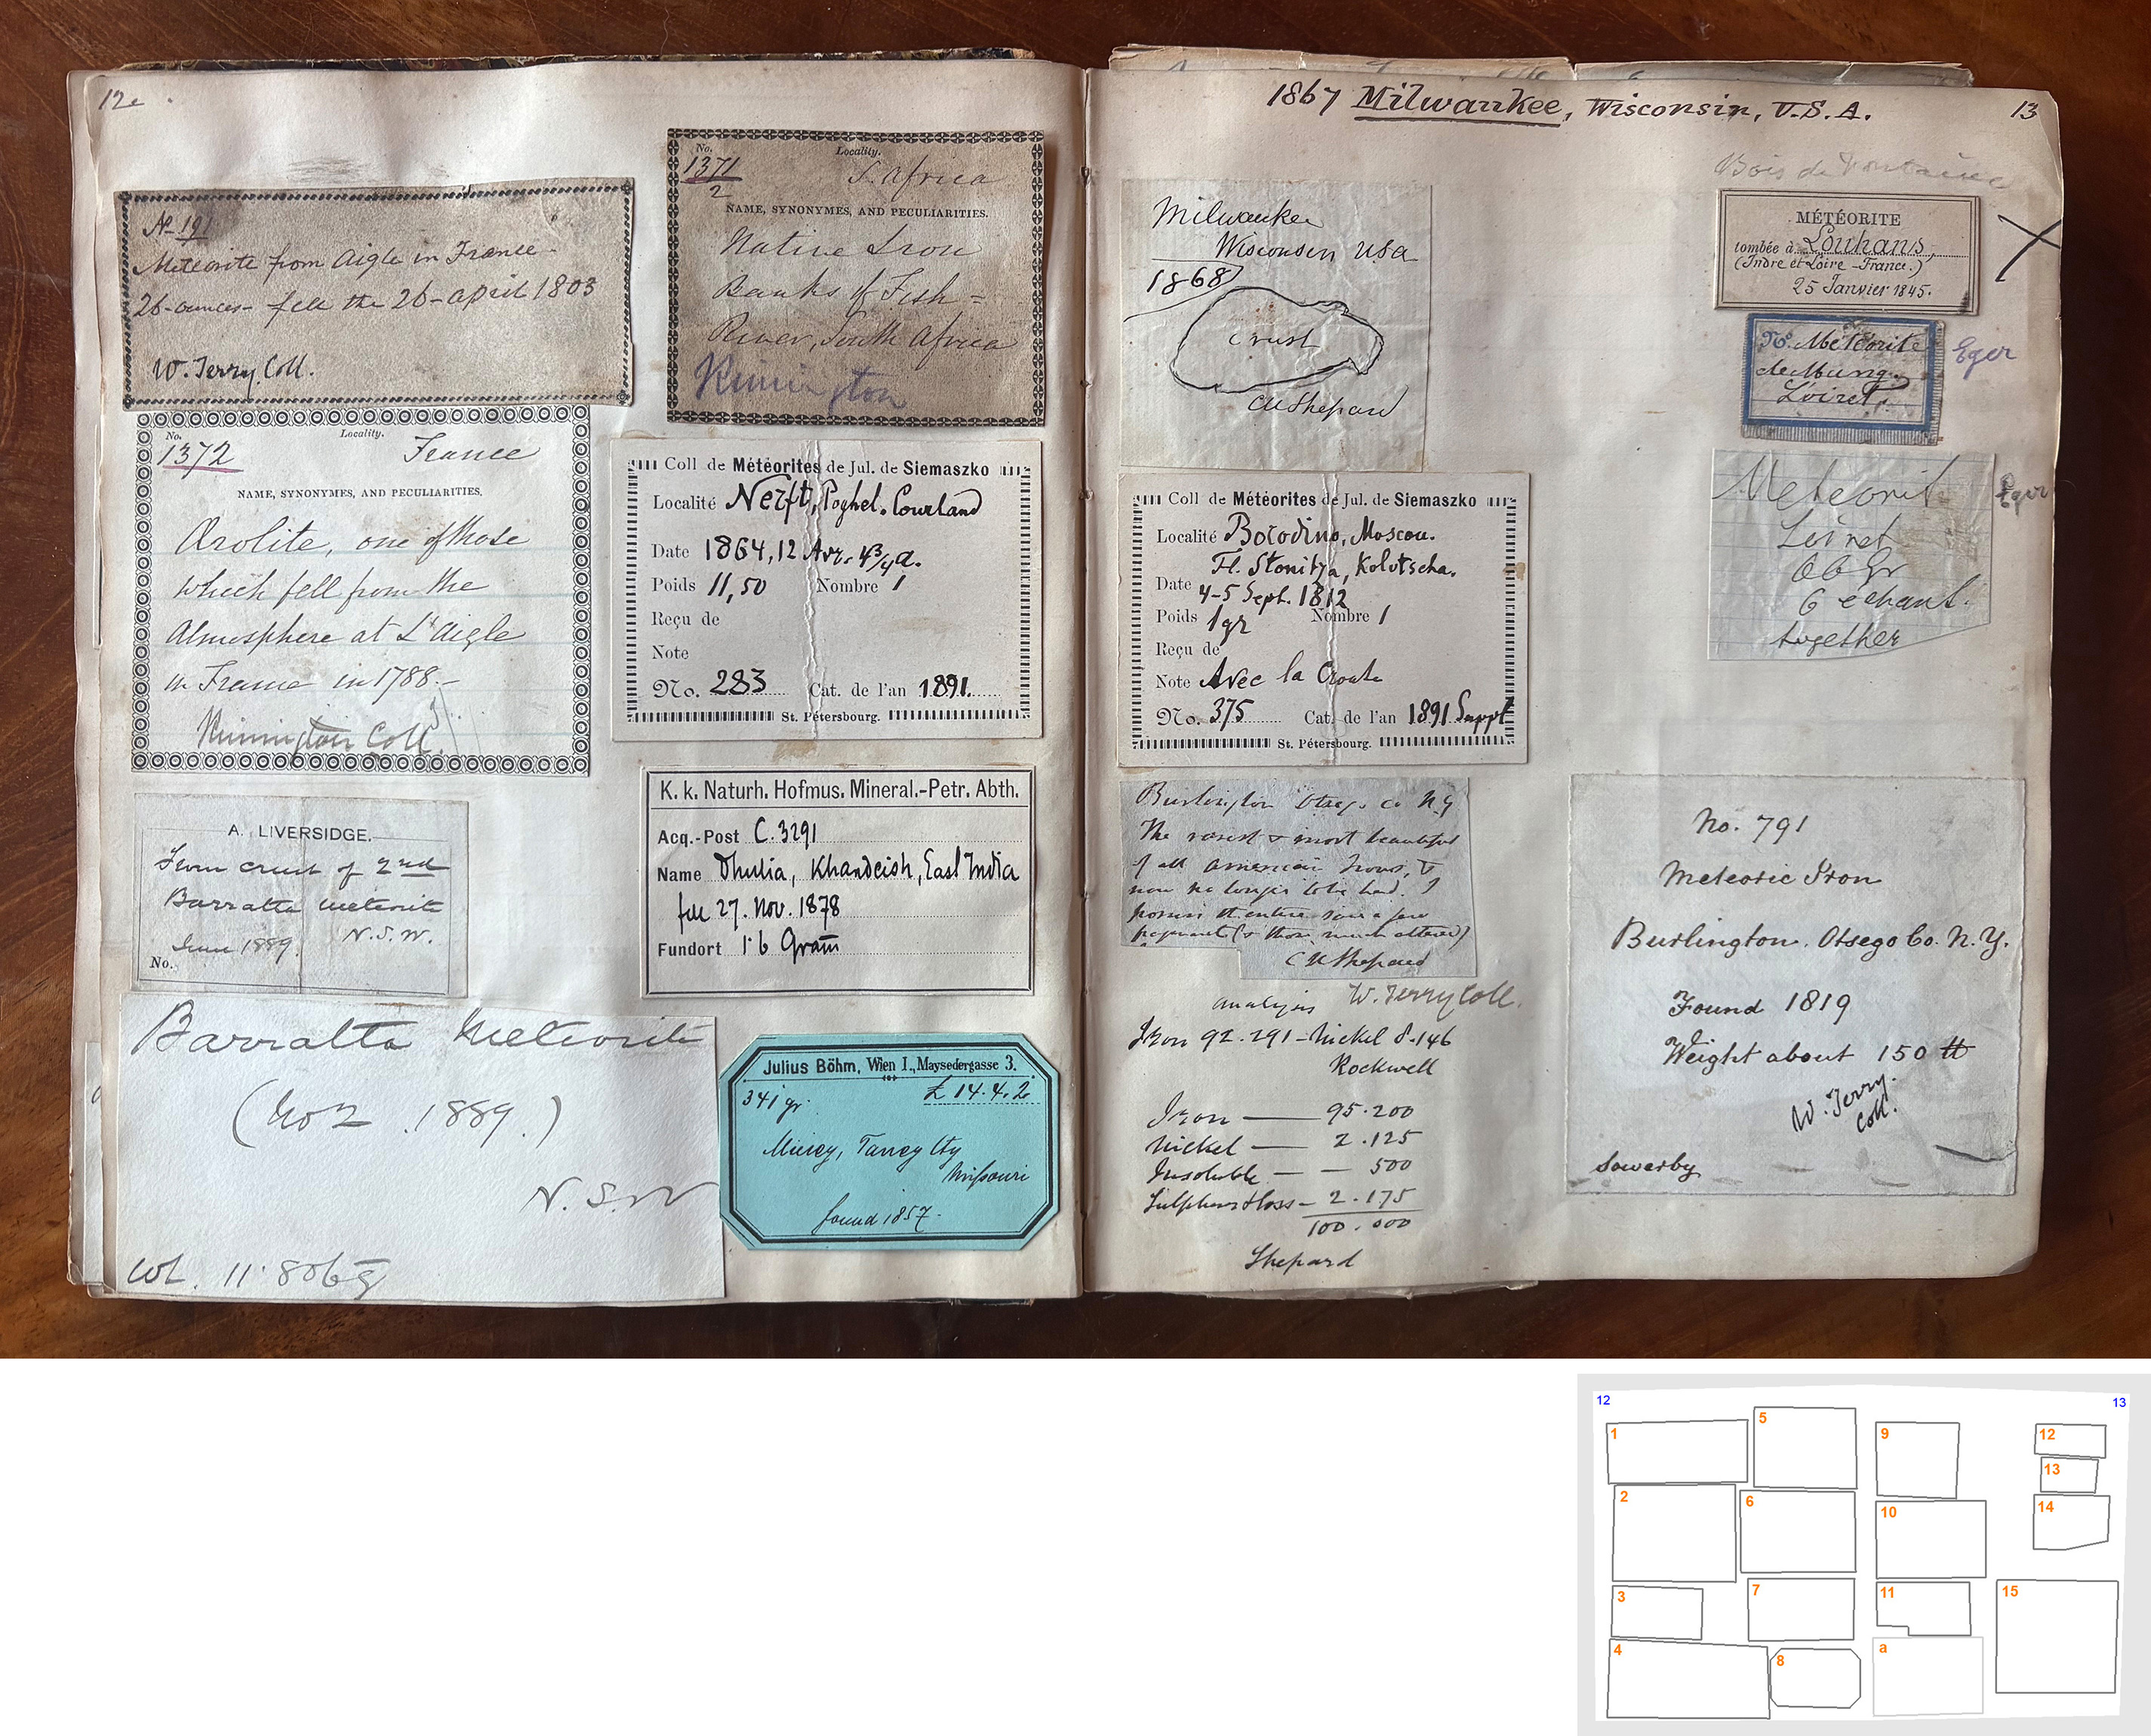 12
No 191
Meteorite from Aigle in France
26-ounces- fell the 26-April 1803
W. Terry Coll.
No.
1372
Locality.
France
NAME, SYNONYMES, AND PECULIARITIES.
Arolite, one of those
which fell from the
Atmosphere at L'Aigle
in France in 1788.-
Rimington Coll.
A. LIVERSIDGE.
From crust of 2nd
Barratta meteorite
June 1889. N.S.W.
No.
Barratta Meteorite
(No 2 .1889.)
N.S.W
wt. 11.806g
No.
1371
2
Locality.
S. Africa
NAME, SYNONYMES, AND PECULIARITIES.
Native Iron
Banks of Fish =
River, South Africa
Rimington
Coll de Météorites de Jul. de Siemaszko
Localité Nerft, Poghel. Courland
Date 1864, 12 Avr. 4¾ a.
Poids 11,50 Nombre 1
Reçu de
Note
No. 283 Cat. de l'an 1891.
St. Pétersbourg.
K. k. Naturh. Hofmus. Mineral.-Petr. Abth.
Acq.-Post C. 3291
Name Dhulia, Khandeish, East India
fell 27. Nov. 1878
Fundort 1·6 Gram
Julius Böhm, Wien I., Maysedergasse 3.
341 gr. £ 14.4.2
Mincy, Taney Cty
Missouri
found 1857.
1867 Milwaukee, Wisconsin, U.S.A.
13
Milwaukee
Wisconsin USA
1868
Crust
CU Shepard
Coll de Météorites de Jul. de Siemaszko
Localité Borodino, Moscou.
Fl. Stonitza, Kolotscha.
Date 4-5 Sept. 1812
Poids 1 gr Nombre 1
Reçu de
Note Avec la Croute
No. 375 Cat. de l'an 1891 Suppt
St. Pétersbourg.
Burlington Otsego Co N.Y
The rarest & most beautiful
of all American Irons, &
now no longer to be had. I
possess it entire save a few
fragments (& those much altered)
CU Shepard
Analysis W. Terry Coll.
Iron 92.291 - Nickel 8.146
Rockwell
Iron — 95.200
Nickel — 2.125
Insoluble — — 500
Sulphur & loss - 2.175
100.000
Shepard
Bois de Fontaine
MÉTÉORITE
tombée à Louhans,
(Indre et Loire - France.)
25 Janvier 1845.
No. Météorite
de Mung.
Loiret.
Eger
Meteorit
Loiret
66 Gr
6 echant.
together
Eger
No. 791
Meteoric Iron
Burlington. Otsego Co. N.Y.
Found 1819
Weight about 150 lb
W. Terry.
Coll.
Sowerby
12
13
1
5
9
12
13
2
6
10
14
3
7
11
15
4
8
a